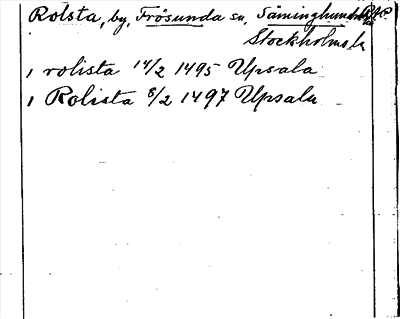 Rolsta, by, Frösunda sn, Seminghundra
Stockholms l.
1 rolista 14/2 1495 Upsala
1 Rolista 8/2 1497 Upsala